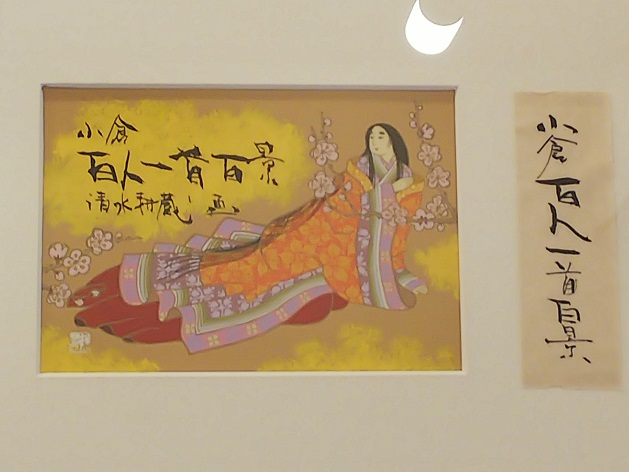 小倉
百人一首百景
清水耕蔵 画
小倉百人一首百景